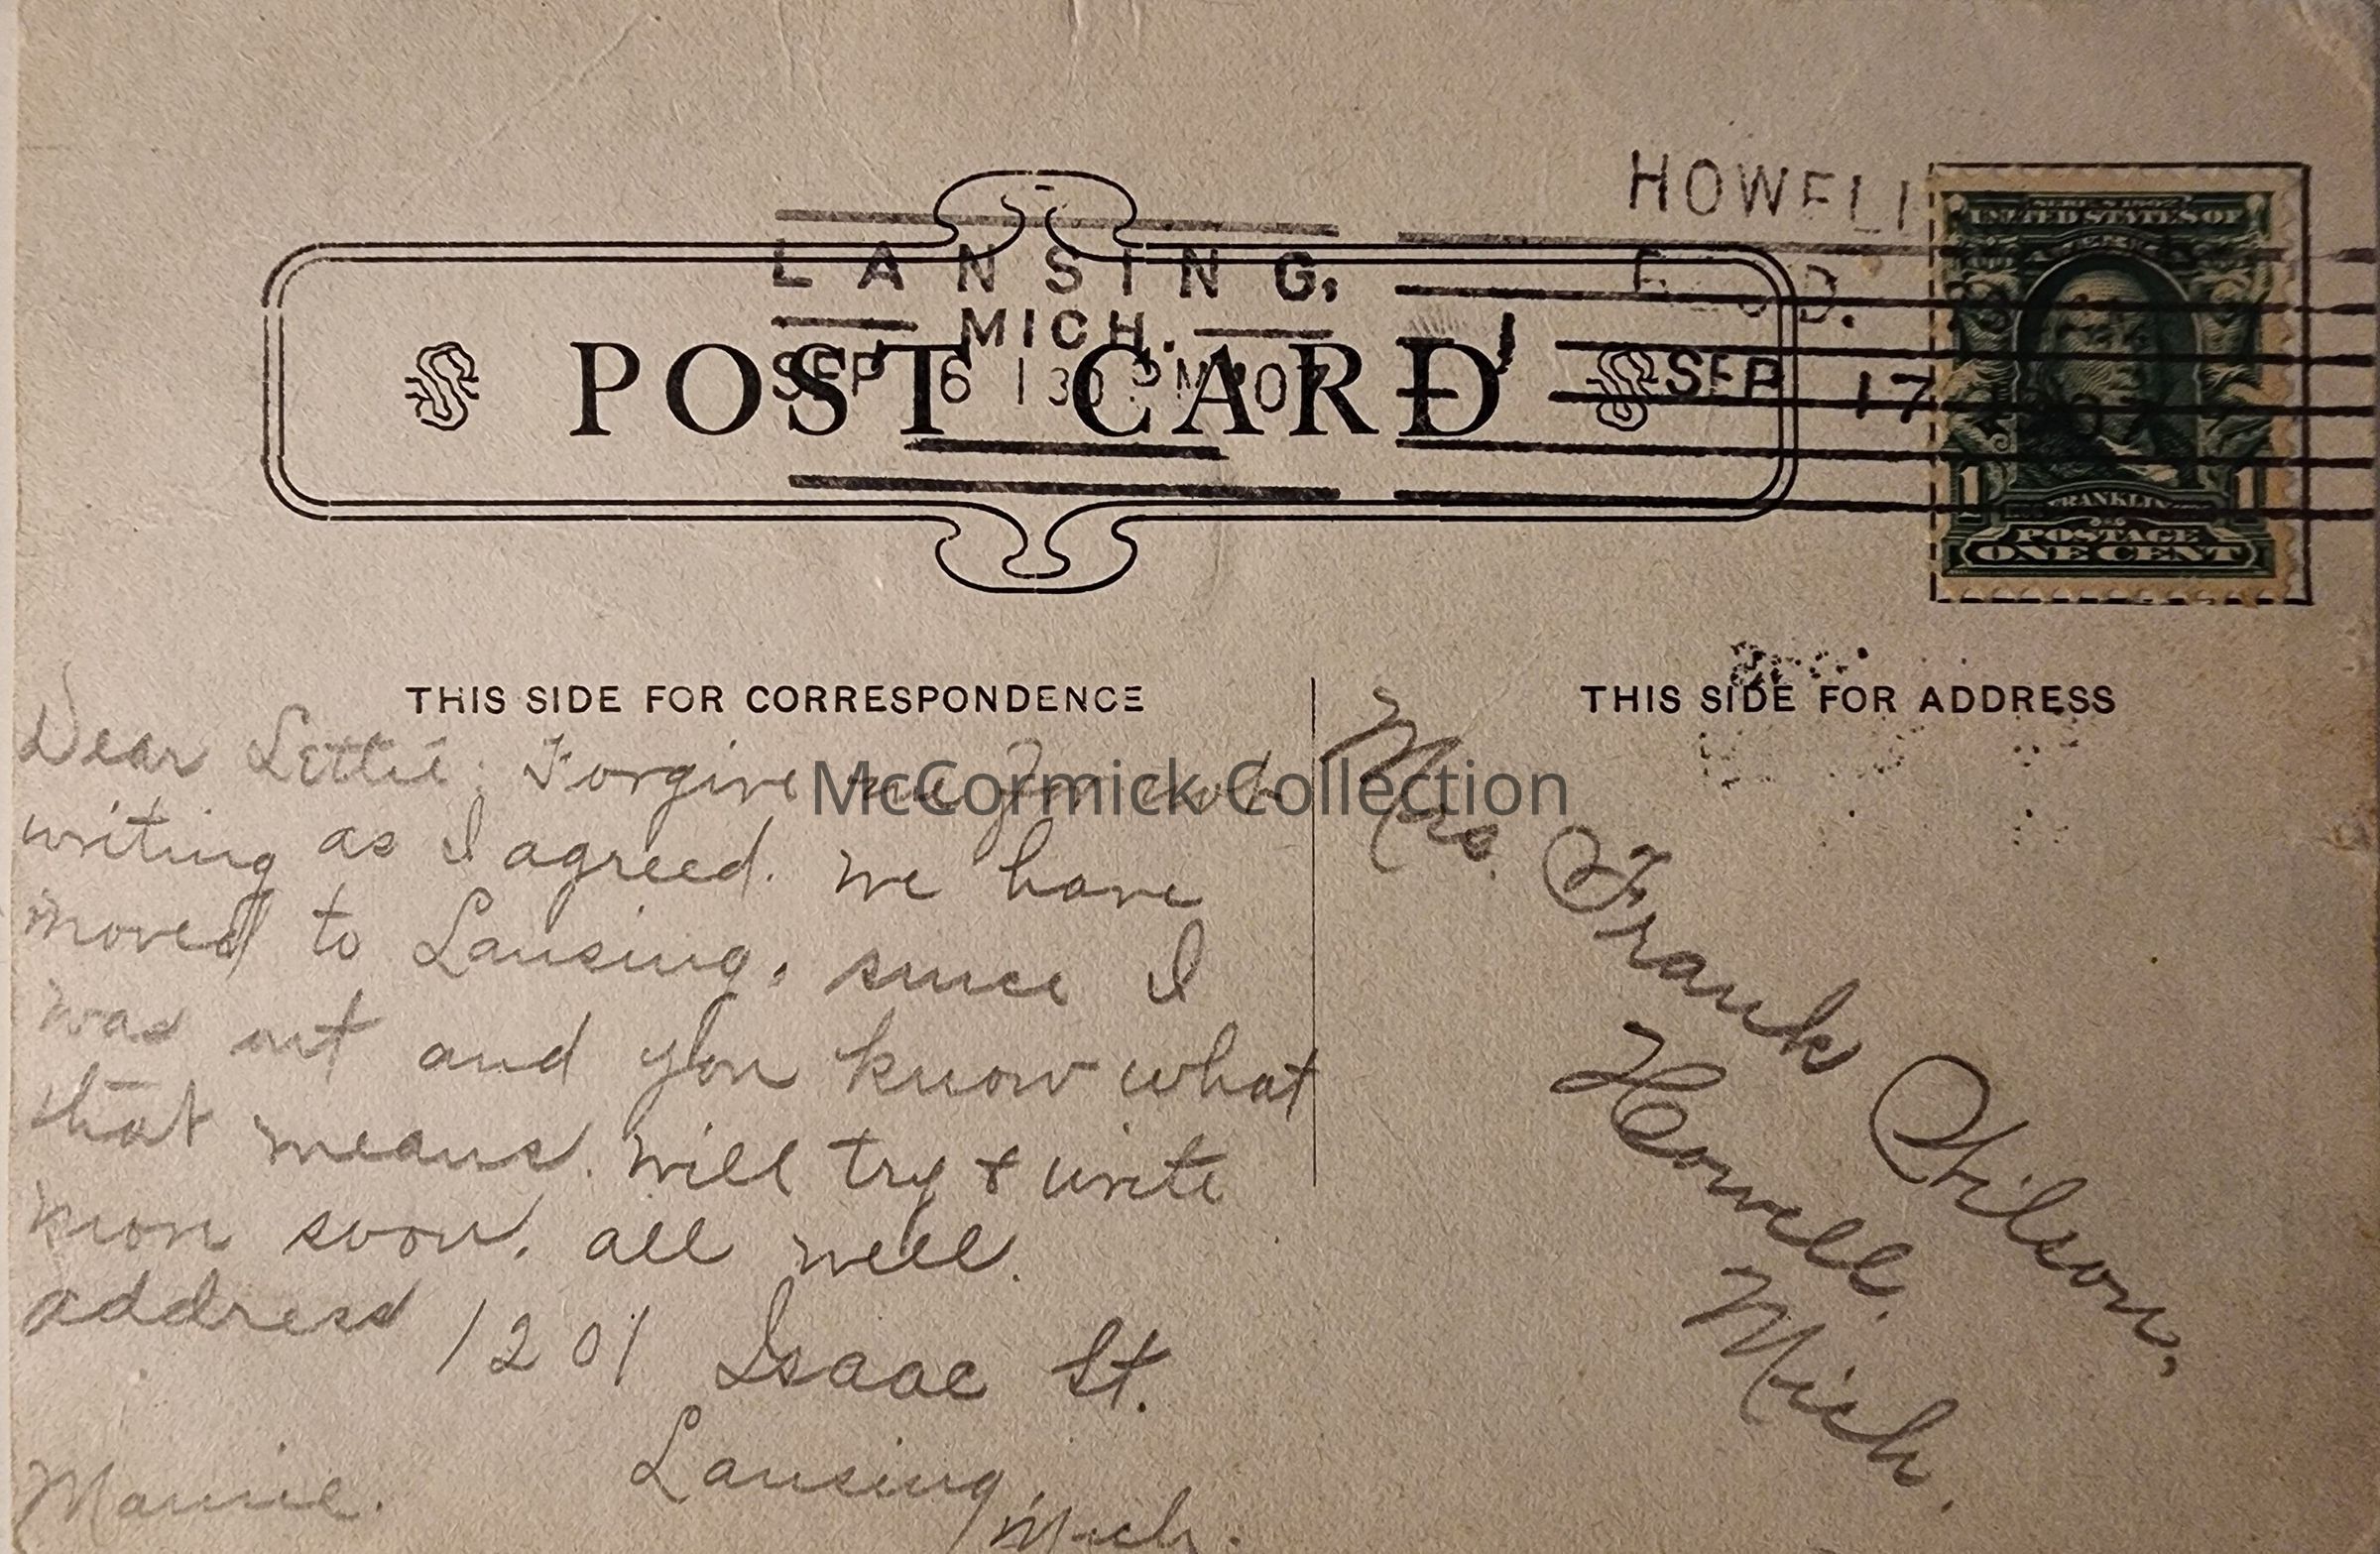 HOWELL
LANSING,
MICH.
SEP 6 130 PM '07
R.F.D.
SEP 17
POST CARD
SERIES 1902
UNITED STATES OF
AMERICA
1 FRANKLIN 1
POSTAGE
ONE CENT
THIS SIDE FOR CORRESPONDENCE
THIS SIDE FOR ADDRESS
McCormick Collection
Dear Lettie: Forgive me for not
writing as I agreed. We have
moved to Lansing, since I
was out and you know what
that means. Will try & write
more soon. all well.
address 1201 Isaac St.
Lansing,
Mich.
Mrs. Frank Wilson,
Howell.
Mich.